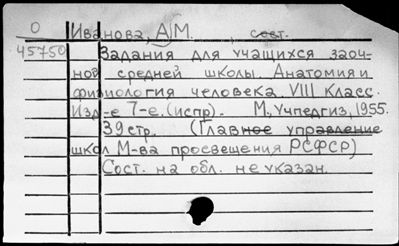 О Иванова, А.М. , сост.
45750 Задания для учащихся заоч-
ной средней школы. Анатомия и
физиология человека. VIII класс.
Изд-е 7-е. (испр). М., Учпедгиз, 1955.
39 стр. (Главное управление
школ М-ва просвещения РСФСР)
Сост. на обл. не указан.